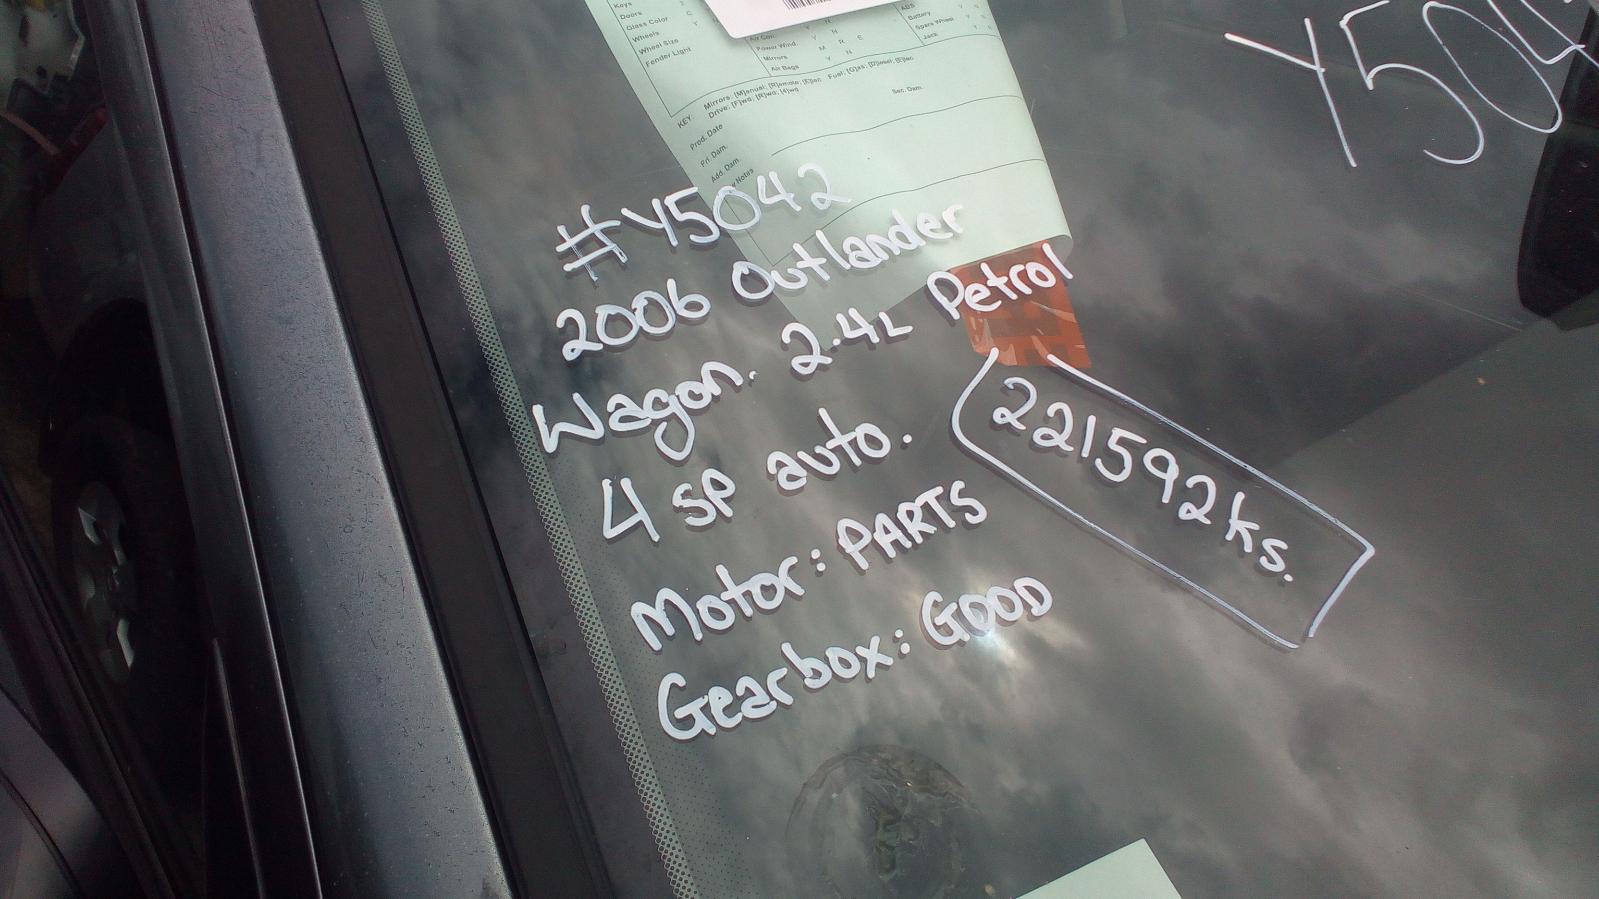 Keys
Doors 2
Glass Color C
Wheels Y
Wheel Size
Fender Light
Air Con. Y N
Power Wind. Y N
Mirrors M R E
Air Bags Y N
ABS Y N
Battery Y N
Spare Wheel Y N
Jack Y N
Mirrors: [M]anual; [R]emote; [E]lec Fuel: [G]as; [D]iesel; [E]lec
KEY: Drive: [F]wd; [R]wd; [4]wd
Prod. Date
Pri. Dam. Sec. Dam.
Add. Dam.
Notes
Y504
#Y5042
2006 Outlander
Wagon. 2.4L Petrol
4 sp auto.
221592ks.
Motor: PARTS
Gearbox: GOOD